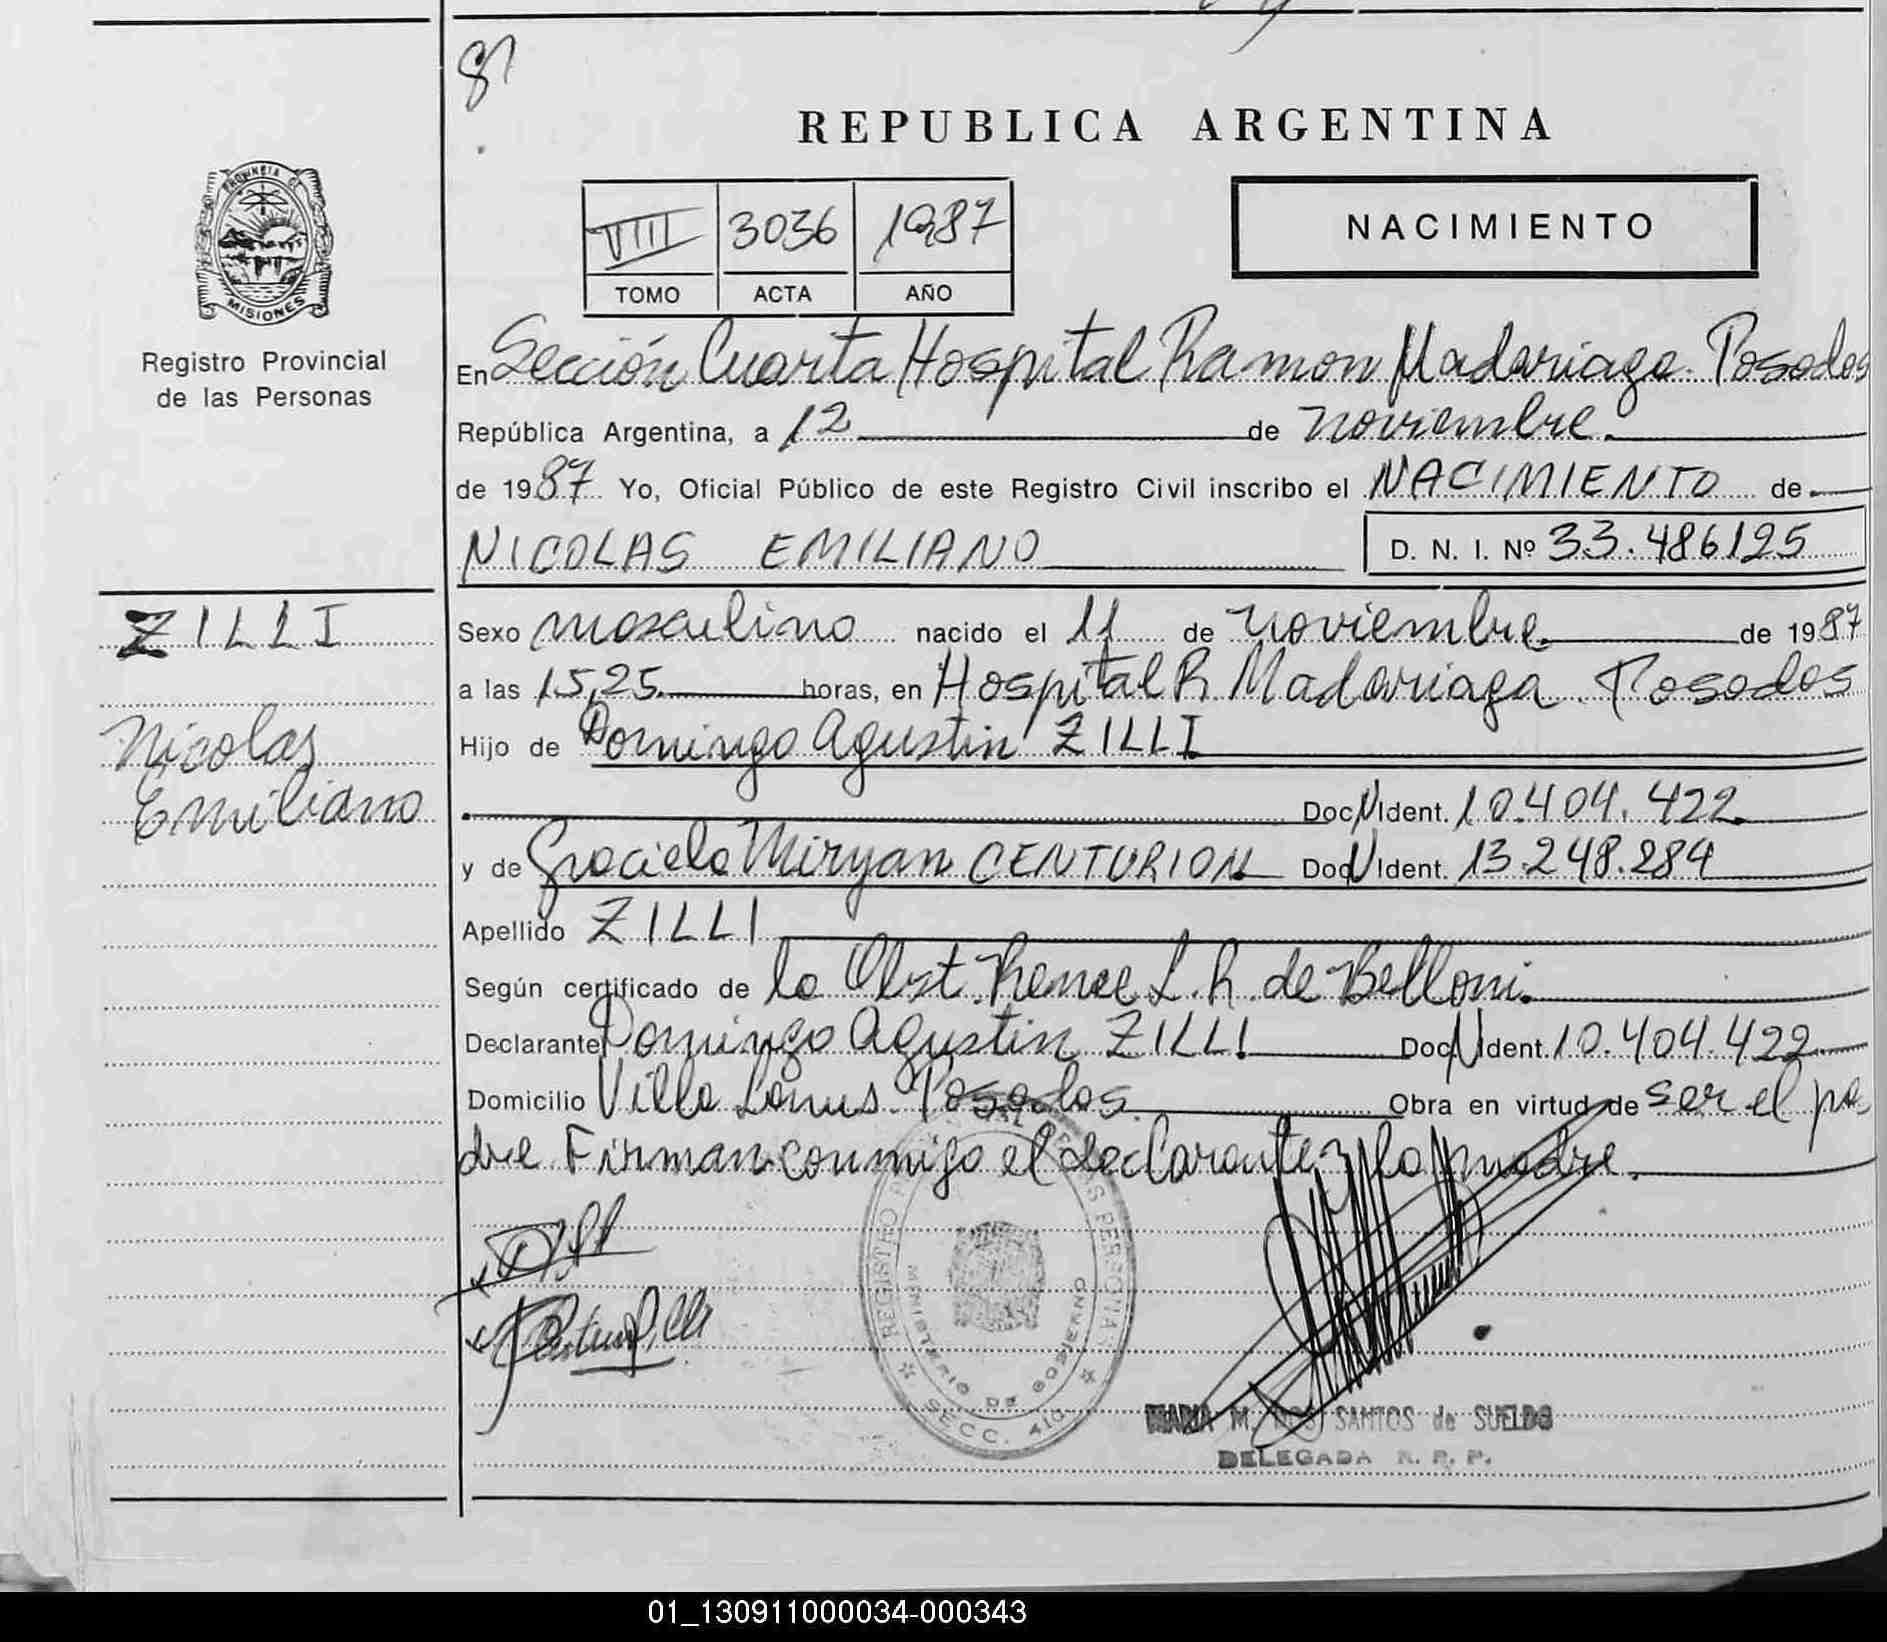 81
REPUBLICA ARGENTINA
PROVINCIA DE
MISIONES
Registro Provincial
de las Personas
VIII 3036 1987
TOMO ACTA AÑO
NACIMIENTO
En Sección Cuarta Hospital Ramon Madariaga. Posadas
República Argentina, a 12 de noviembre.
de 1987 Yo, Oficial Público de este Registro Civil inscribo el NACIMIENTO de
NICOLAS EMILIANO D. N. I. Nº 33.486125
ZILLI
Nicolas
Emiliano
Sexo masculino nacido el 11 de noviembre. de 1987
a las 15,25 horas, en Hospital R Madariaga. Posadas
Hijo de Domingo Agustin ZILLI
Doc N Ident. 10.404.422
y de Graciela Miryan CENTURION Doc N Ident. 13.248.284
Apellido ZILLI
Según certificado de la Obst. Renee L. R. de Belloni.
Declarante Domingo Agustin ZILLI Doc N Ident. 10.404.422
Domicilio Villa Lanus. Posadas. Obra en virtud de ser el pa
dre Firman conmigo el declarante y la madre.
REGISTRO PROVINCIAL DE LAS PERSONAS
MINISTERIO DE GOBIERNO
SECC. 4ta.
MARIA M. DOS SANTOS de SUELDO
DELEGADA R. P. P.
01_130911000034-000343